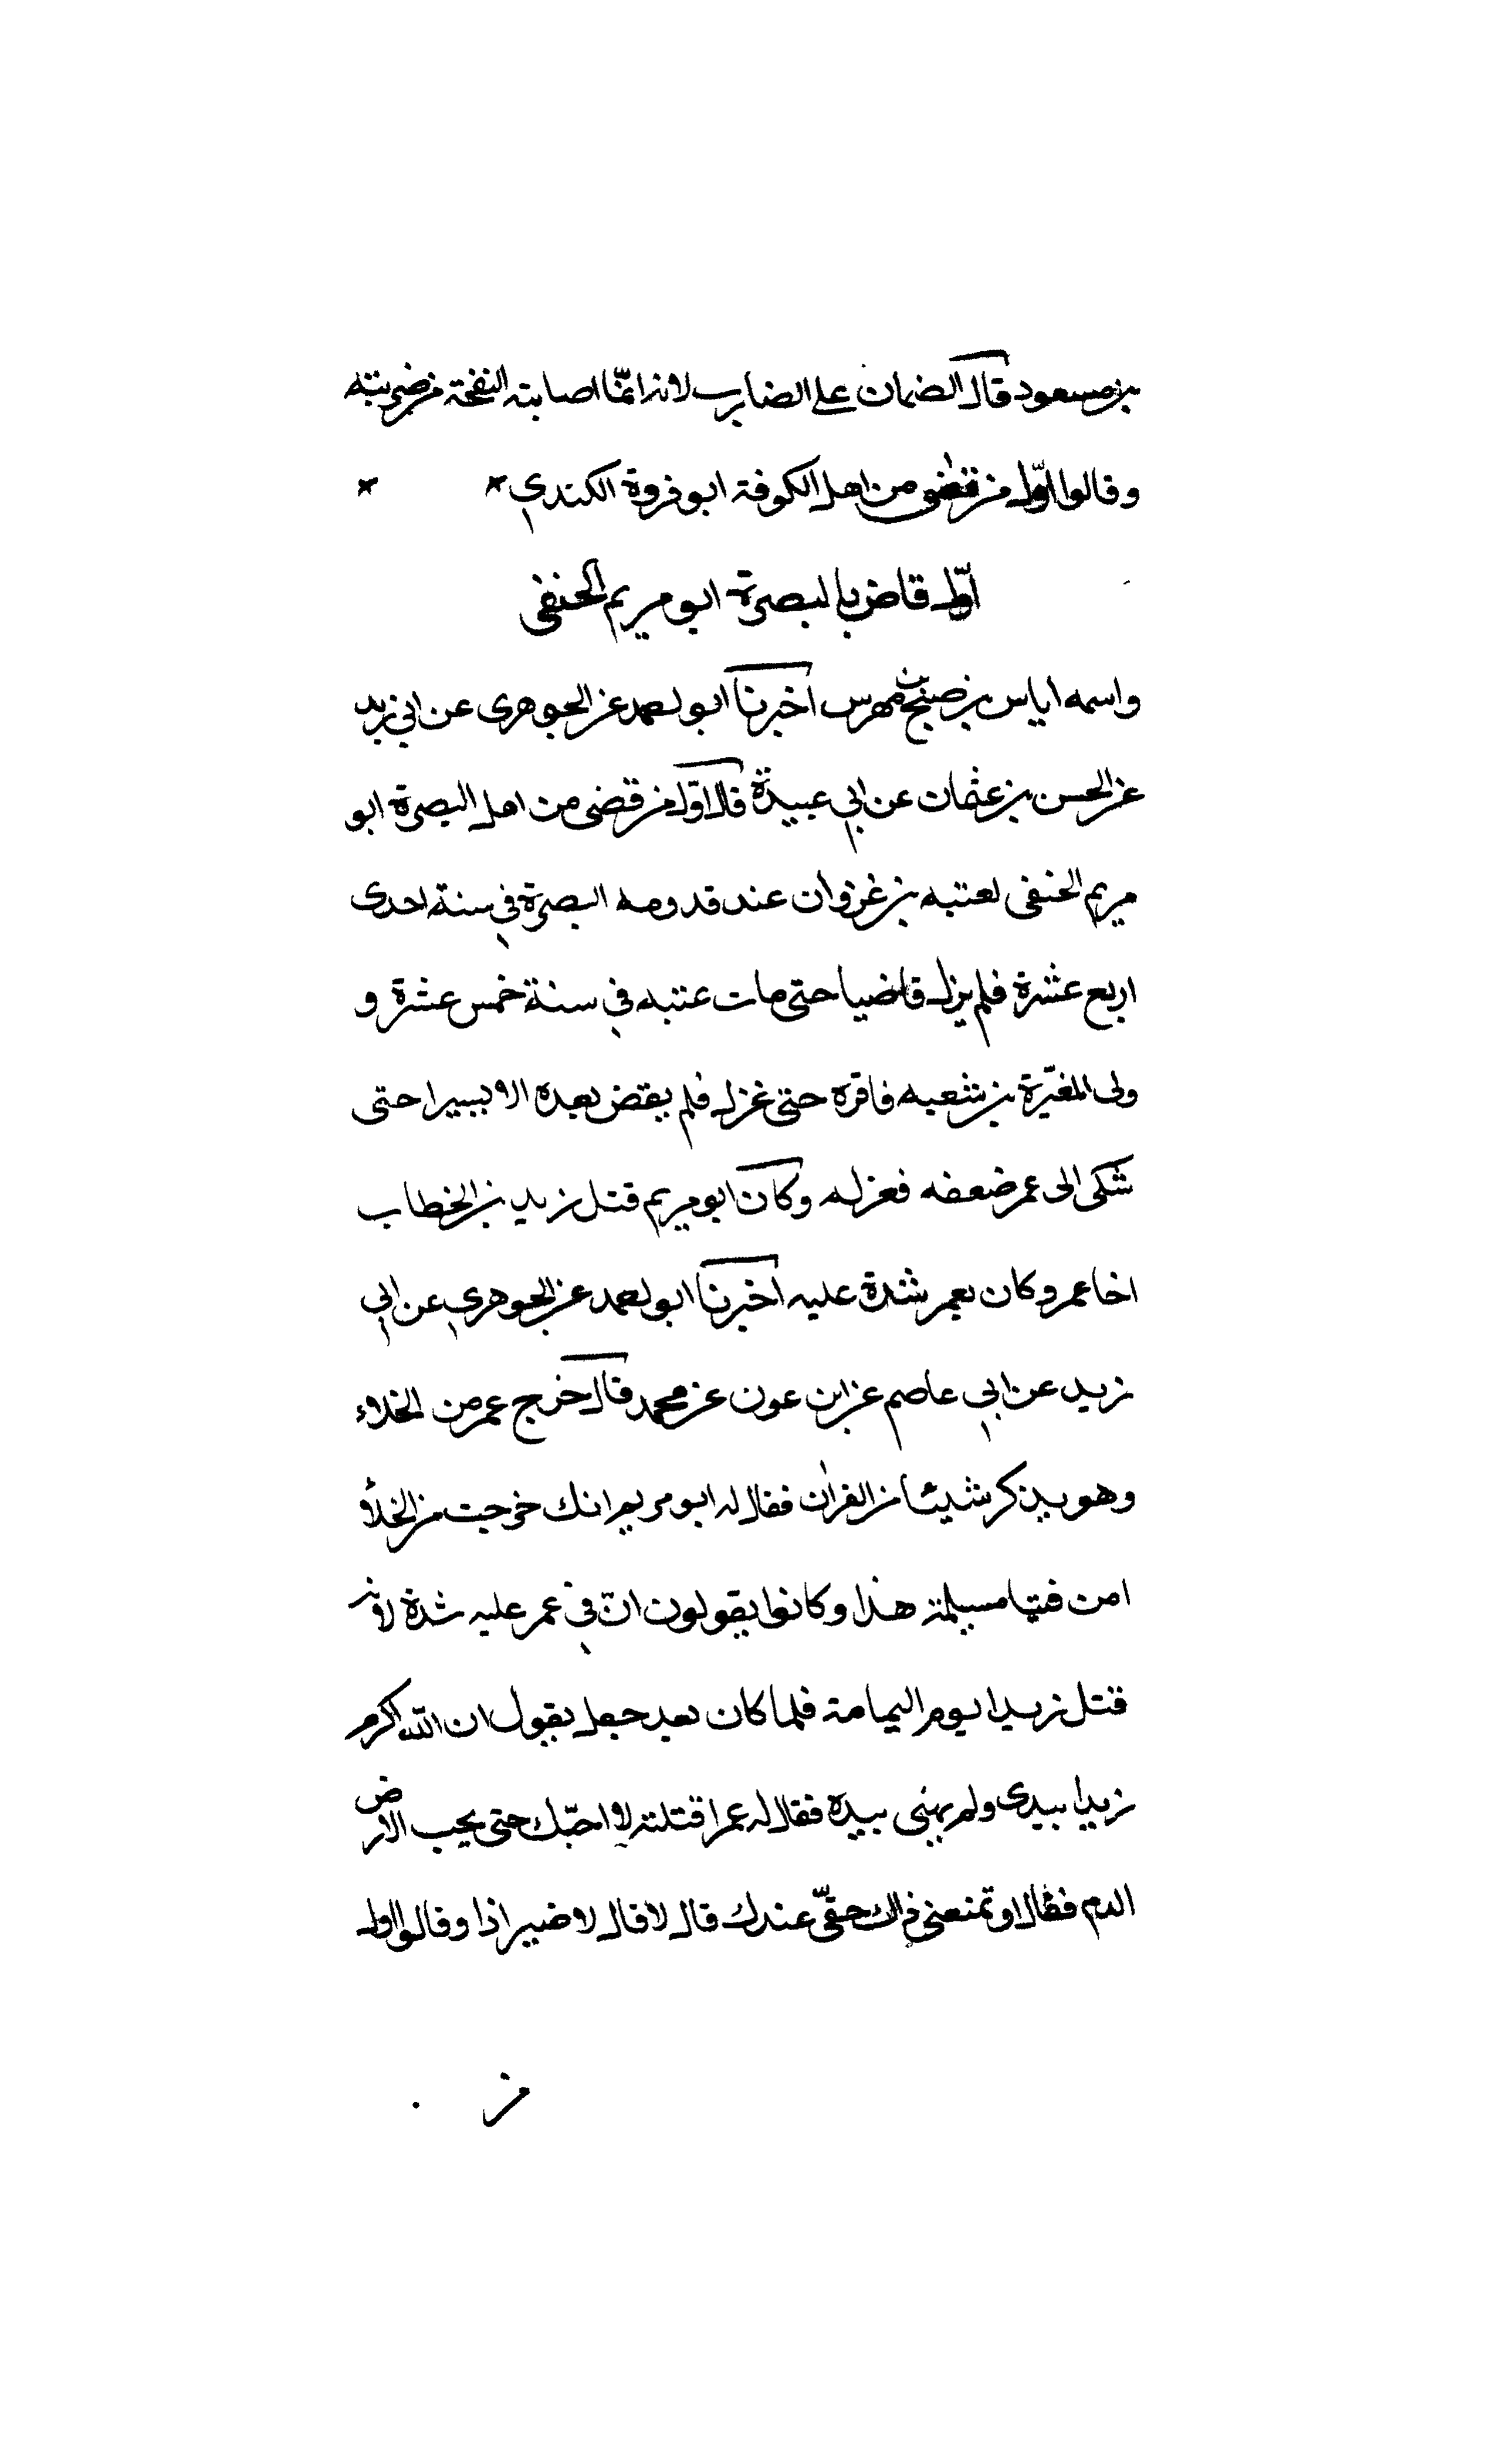 بن مسعود قال الضمان على الضارب لانه انما اصابته النفخة من ضربته
وقالوا اول من قضى من اهل الكوفة ابو فروة الكندي
اوّل قاض بالبصرة ابو مريم الحنفي
واسمه اياس بن صبيح بن مهرس اخبرنا ابو احمد عن الجوهرى عن ابي زيد
عن الحسن بن عثمان عن ابي عبيدة قال اوّل من قضى من اهل البصرة ابو
مريم الحنفى لعتبه بن غزوان عند قدومه البصرة في سنة احدى
اربع عشرة فلم يزل قاضيا حتى مات عتبه في سنة خمس عشرة و
ولى المغيّرة بن شعبه فاقره حتى عزل فلم يقض بعده الا يسيرا حتى
شكى الى عمر ضعفه فعزله وكان ابو مريم قتل زيد بن الخطاب
اخا عمر وكان بعمر شدة عليه اخبرنا ابو احمد عن الجوهري عن ابي
زيد عن ابي عاصم عن ابن عون عن محمد قال خرج عمر من الخلاء
وهو يذكر شيئا من القران فقال له ابو مريم انك خرجت من الخلأ
امن فتيا مسيلمة هذا وكانوا يقولون انّ في عمر عليه شدة لانه
قتل زيدا يوم اليمامة فلما كان بعد جعل يقول ان الله اكرم
زيدا بيدى ولم يهنى بيده فقال له عمر اقتلته لا احبّك حتى يحب الارض
الدم فقال او تمنعنى ذاك حقّي عندك قال لا قال لا ضير اذا وقالوا اول
من